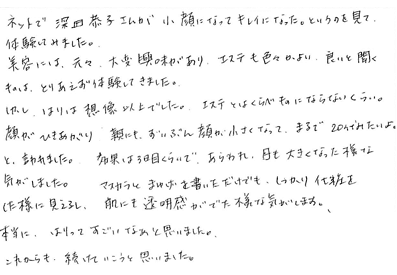 ネットで 深田恭子さんが 小顔になってキレイになった。というのを見て、
体験してみました。
美容には、元々、大変興味があり、エステも色々かよい、良いと聞く
ものは、とりあえず体験してきました。
けど、はりは想像以上でした。エステとはくらべものにならないくらい。
顔がひきあがり 親にも、ずいぶん顔が小さくなって、まるで20才みたいよ。
と、言われました。 効果は3日目くらいで、あらわれ、目も大きくなった様な
気がしました。 マスカラと まゆげを書いただけでも、しっかり化粧を
した様に見えるし、肌にも透明感がでた様な気がします。
本当に、はりってすごいなぁと思いました。
これからも、続けていこうと思いました。